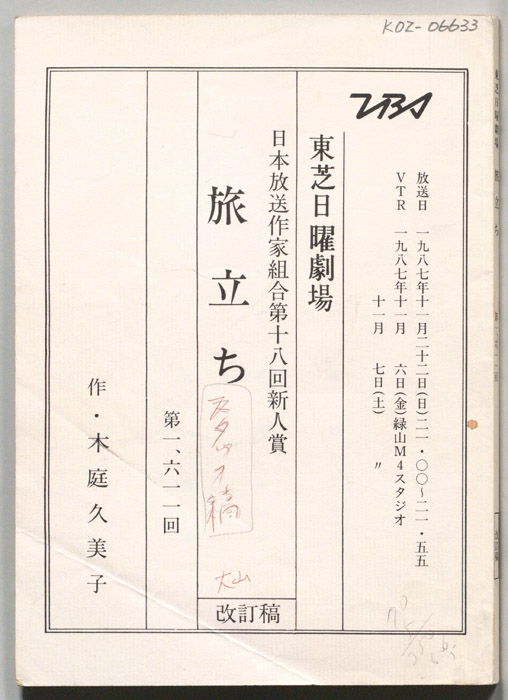 KOZ-06633
TBS
放送日 一九八七年十一月二十二日(日)二一・〇〇〜二一・五五
VTR 一九八七年十一月 六日(金)緑山M4スタジオ
十一月 七日(土) 〃
東芝日曜劇場
日本放送作家組合第十八回新人賞
旅立ち
スタッフ稿
大山
改訂稿
第一、六一一回
作・木庭久美子
東芝日曜劇場 旅立ち 第一、六一一回 改訂稿